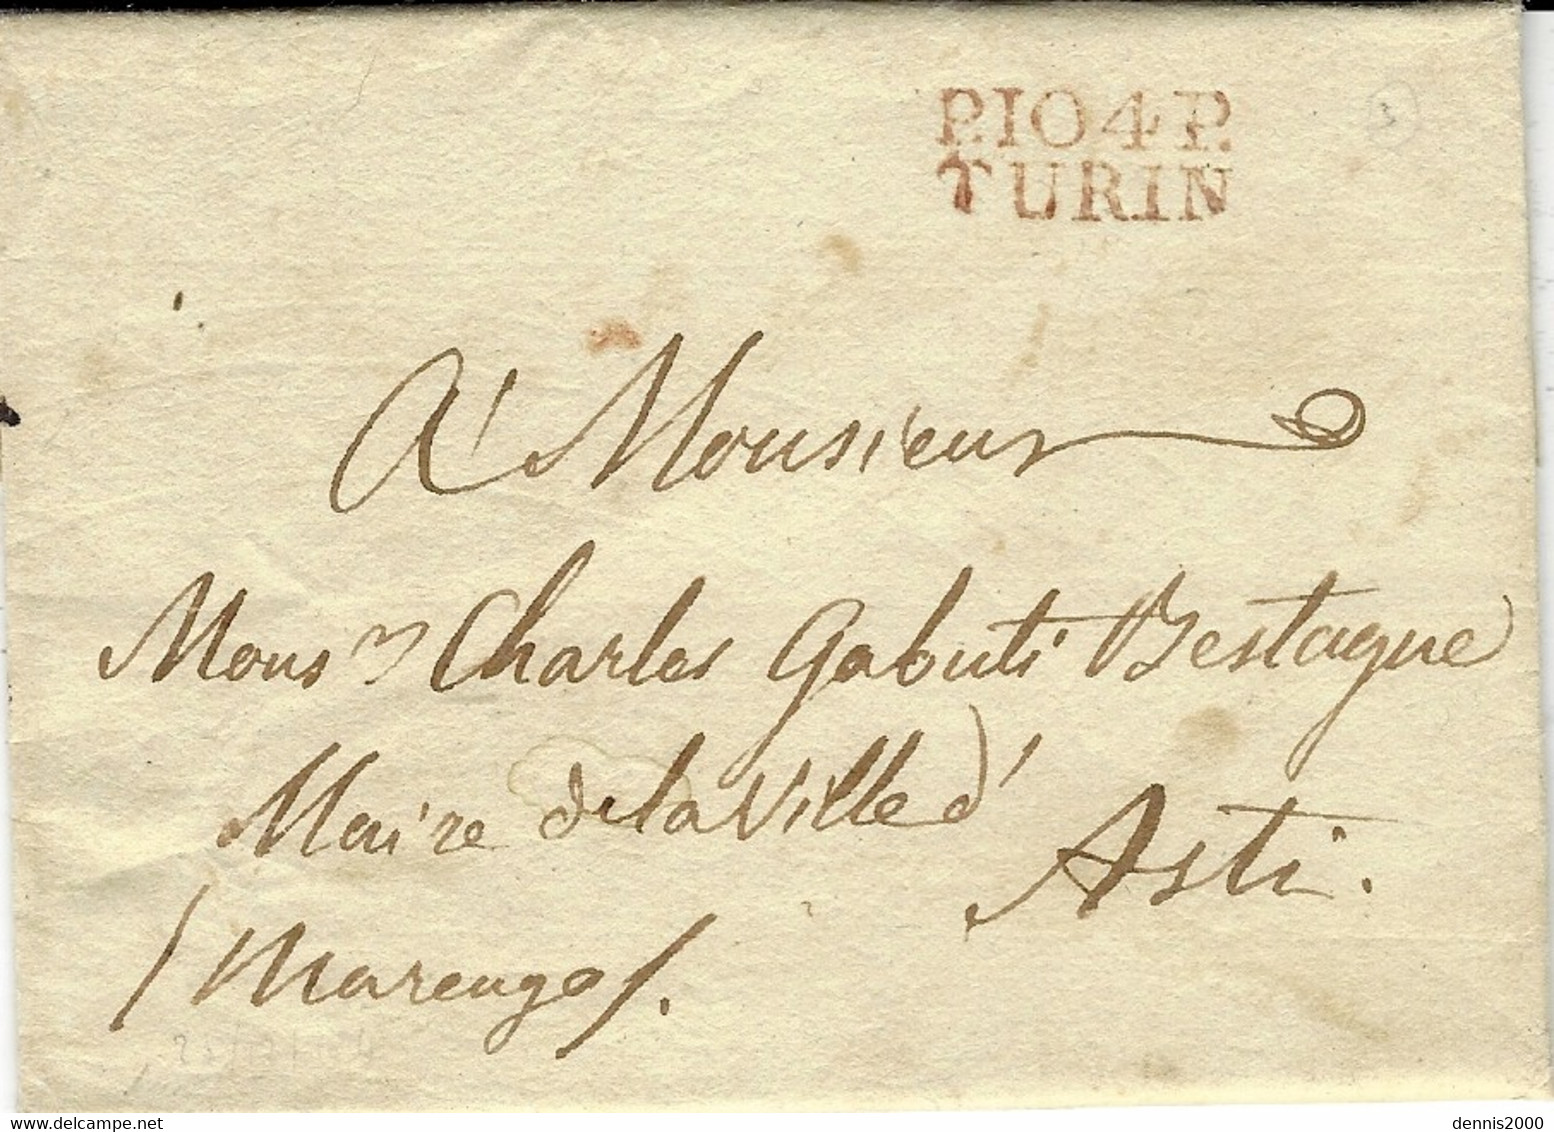 P.104 P.
TURIN
3
A' Monsieur
Mons.r Charles Gabuti Bestagne
Maire de la Ville d'
Asti.
/ Marengo /.
dennis2000